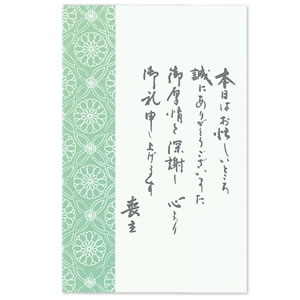 本日はお忙しいところ
誠にありがとうございました
御厚情を深謝し 心より
御礼申し上げます
喪主